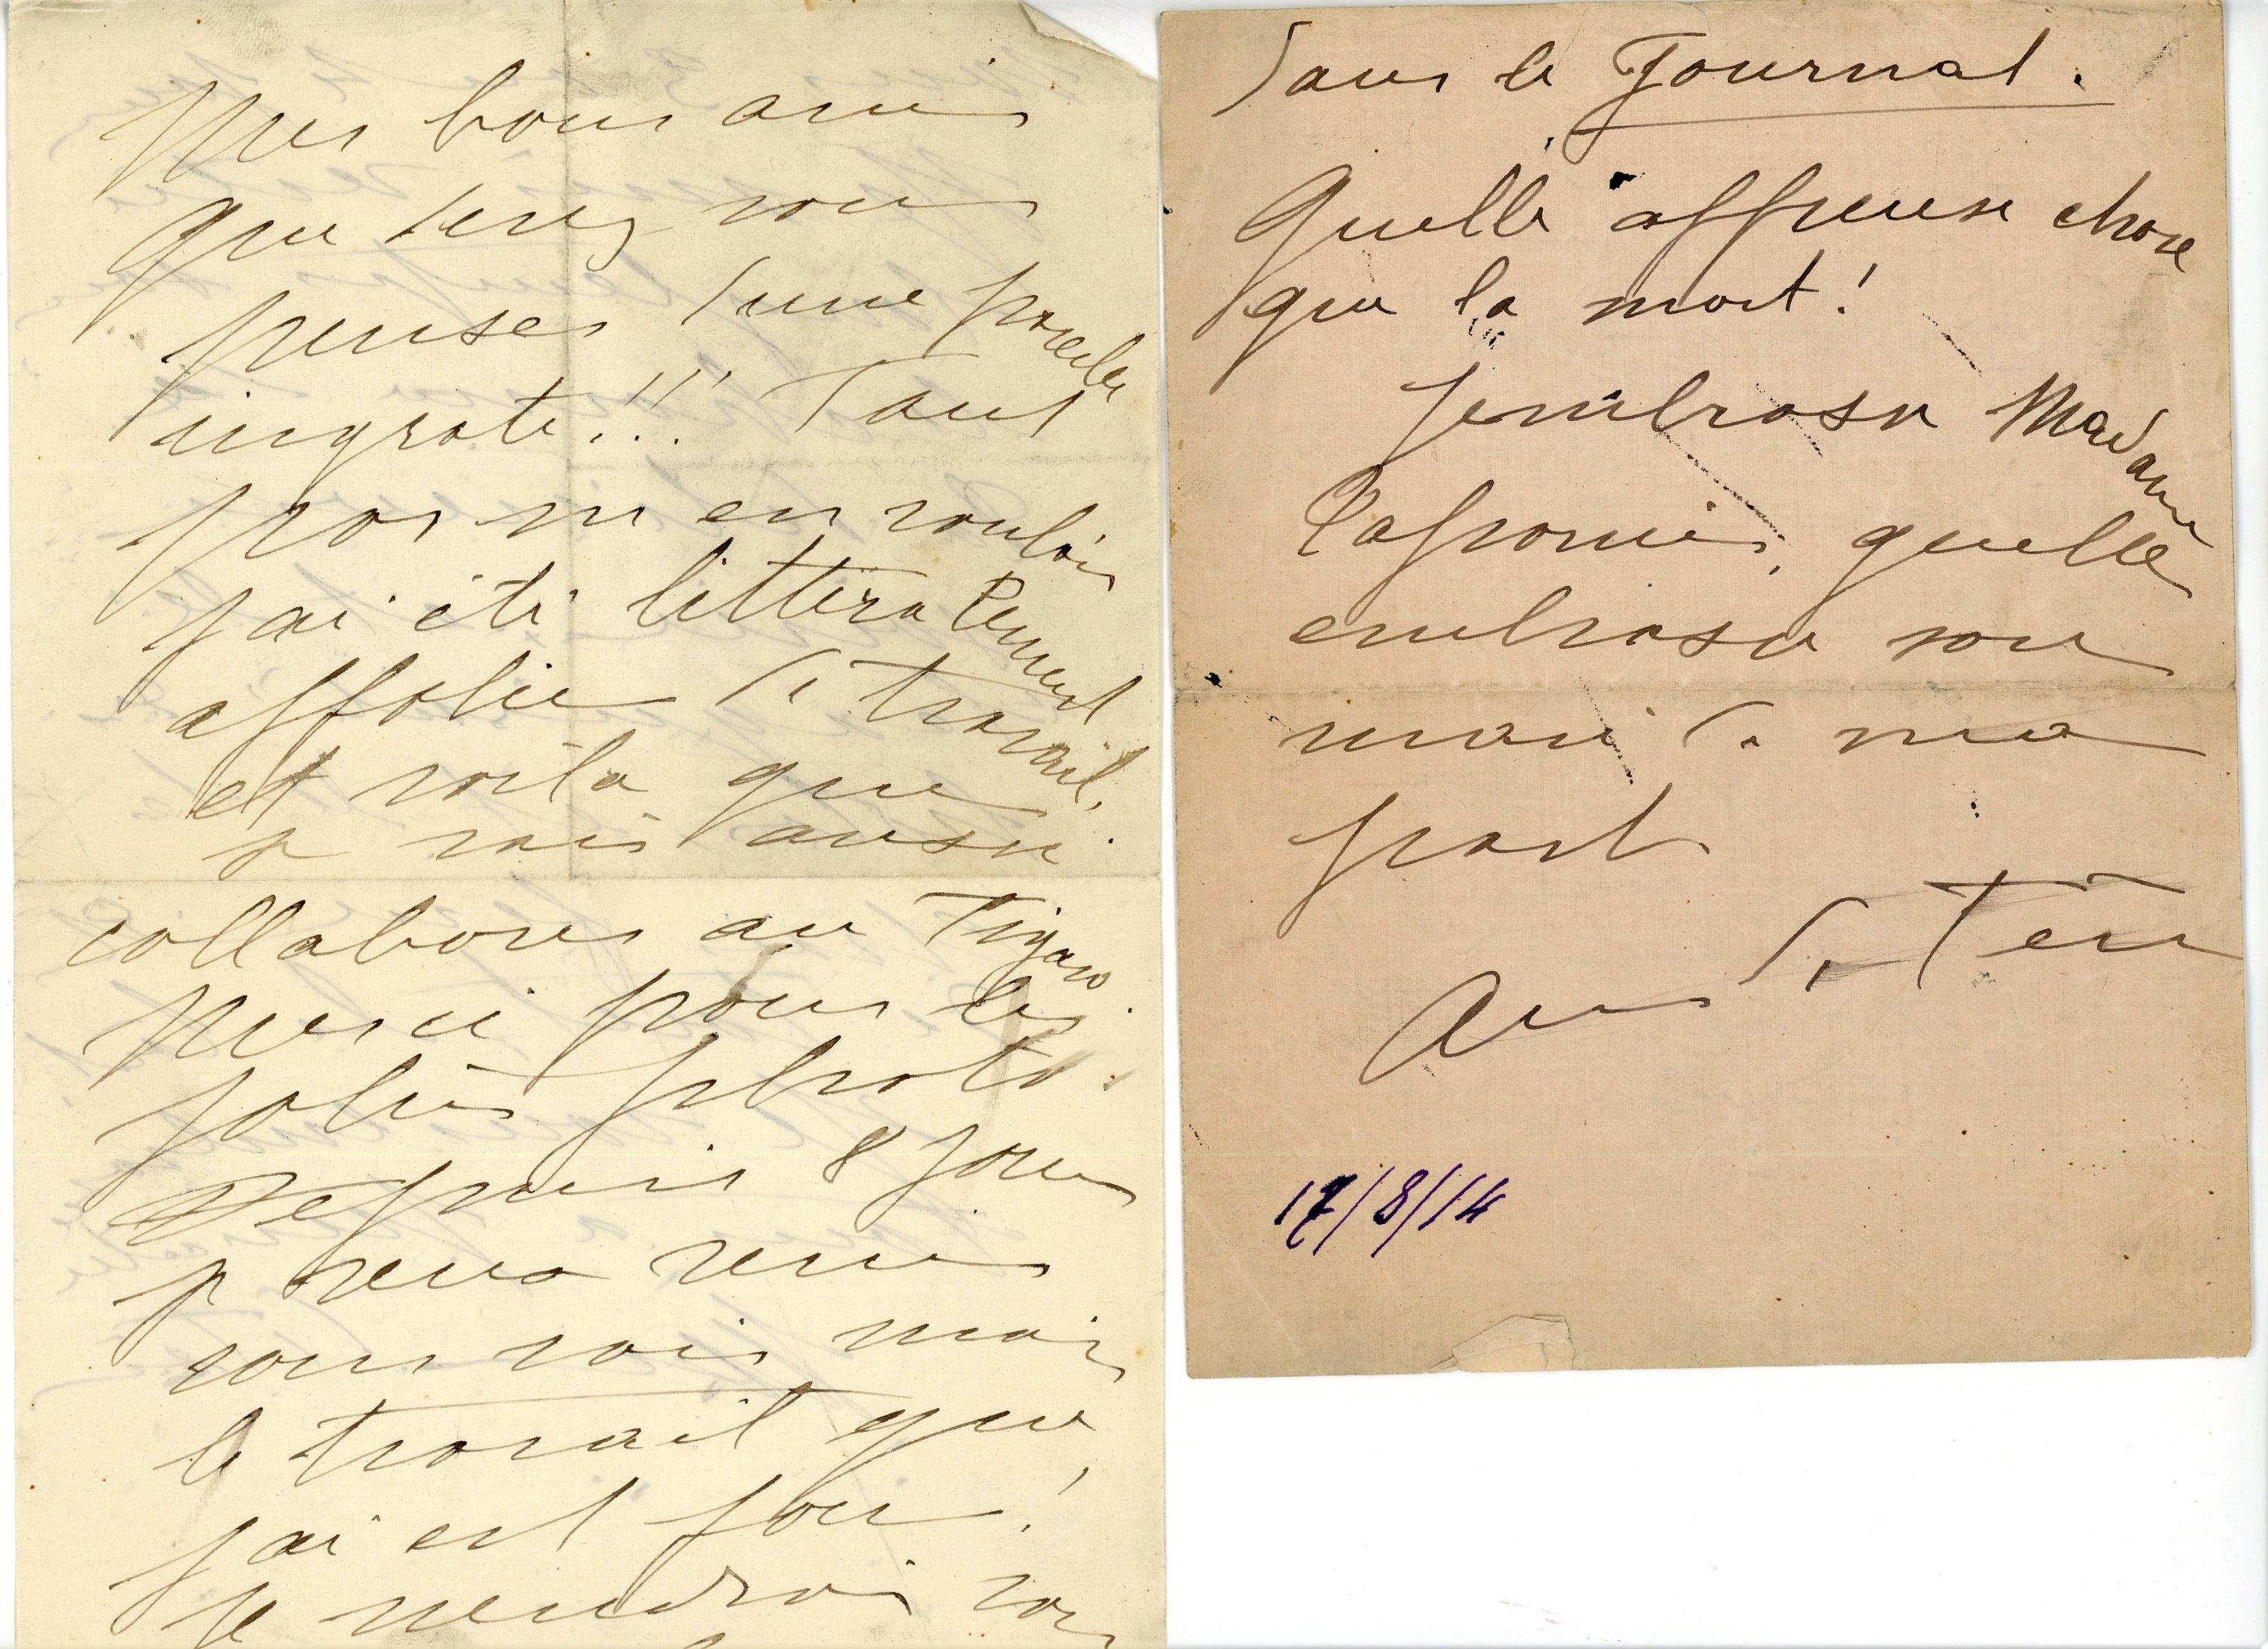 Mes bons amis
que devez vous
penser d'une pareille
ingrate!!! Faut
pas m'en vouloir
j'ai été littéralement
affolée de travail.
et voilà que
je vais aussi
collaborer au Figaro.
Merci pour les
jolies photo.
Depuis 8 jours
je veux venir
vous voir mais
le travail que
j'ai est fou!
je viendrai vous
dans le Journal.
Quelle affreuse chose
que la mort!
J'embrasse Madame
quelle
embrasse son
mari de ma
part
de Tèr
17/8/14